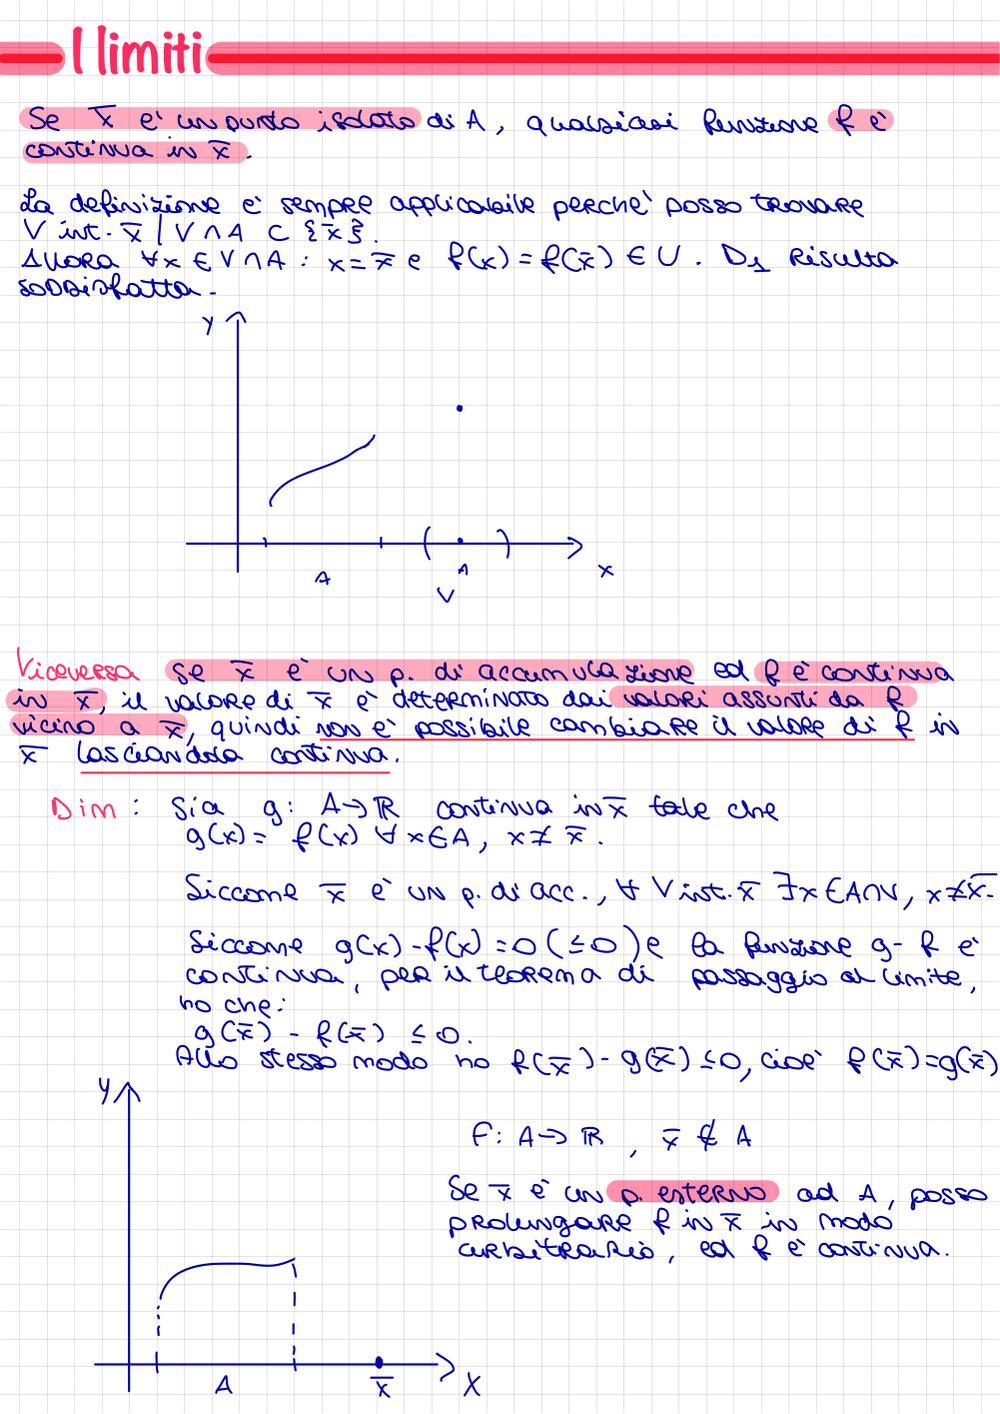 I limiti
Se x̄ è un punto isolato di A, qualsiasi funzione f è
continua in x̄.
La definizione è sempre applicabile perchè posso trovare
V int. x̄ | V ∩ A ⊂ {x̄}.
Allora ∀x ∈ V ∩ A : x = x̄ e f(x) = f(x̄) ∈ U. D1 risulta
soddisfatta.
y
A
A
V
x
Viceversa se x̄ è un p. di accumulazione ed f è continua
in x̄, il valore di x̄ è determinato dai valori assunti da f
vicino a x̄, quindi non è possibile cambiare il valore di f in
x̄ lasciandola continua.
Dim : Sia g: A → ℝ continua in x̄ tale che
g(x) = f(x) ∀ x ∈ A, x ≠ x̄.
Siccome x̄ è un p. di acc., ∀ V int. x̄ ∃x ∈ A∩V, x ≠ x̄.
Siccome g(x) - f(x) = 0 (≤ 0) e la funzione g - f è
continua, per il teorema di passaggio al limite,
ho che:
g(x̄) - f(x̄) ≤ 0.
Allo stesso modo ho f(x̄) - g(x̄) ≤ 0, cioè f(x̄) = g(x̄)
y
f: A → ℝ , x̄ ∉ A
Se x̄ è un p. esterno ad A, posso
prolungare f in x̄ in modo
arbitrario, ed f è continua.
A
x̄
x